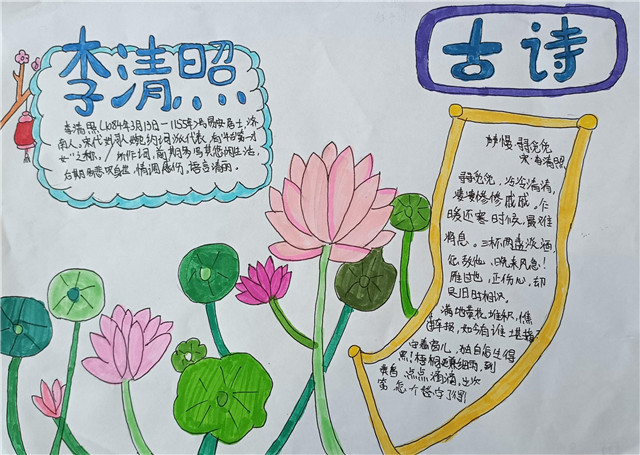 李清照
李清照(1084年3月13日一1155年)号易安居士,济
南人。宋代婉约词派代表,有"千古第一才
女"之称。所作词,前期多写其悠闲生活,
后期多悲叹身世,情调感伤,语言清丽。
古诗
声声慢·寻寻觅觅
宋·李清照
寻寻觅觅,冷冷清清,
凄凄惨惨戚戚。乍
暖还寒时候,最难
将息。三杯两盏淡酒,
怎敌他、晚来风急!
雁过也,正伤心,却
是旧时相识。
满地黄花堆积,憔
悴损,如今有谁堪摘?
守着窗儿,独自怎生得
黑!梧桐更兼细雨,到
黄昏、点点滴滴。这次
第,怎一个愁字了得!